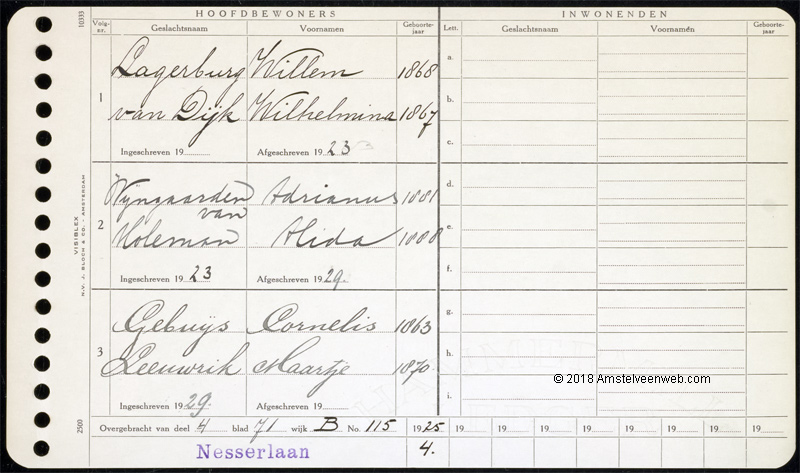 HOOFDBEWONERS INWONENDEN
Volg-nr. Geslachtsnaam Voornamen Geboorte-jaar Lett. Geslachtsnaam Voornamen Geboorte-jaar
10333
1
Lagerburg Willem 1868 a.
van Dijk Wilhelmina 1867 b.
c.
Ingeschreven 19 Afgeschreven 19 23
2
Wijngaarden van Adrianus 1881 d.
Holeman Alida 1888 e.
f.
Ingeschreven 19 23 Afgeschreven 19 29.
VISIBLEX
N.V. J. BLOCH & CO. - AMSTERDAM
3
Gebuijs Cornelis 1863 g.
Leeuwrik Maartje 1870 h.
i.
Ingeschreven 19 29. Afgeschreven 19
© 2018 Amstelveenweb.com
2500
Overgebracht van deel 4 blad 71 wijk B No. 115 1925 19 19 19 19 19 19 19 19
Nesserlaan 4.